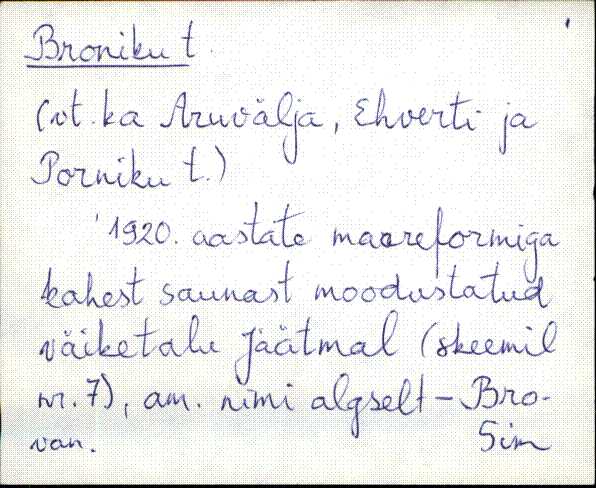 Broniku t.
(vt. ka Aruvälja, Ehverti ja
Porniku t.)
1920. aastate maareformiga
kahest saunast moodustatud
väiketalu Jäätmal (skeemil
nr. 7), am. nimi algselt - Bro-
van. Sim